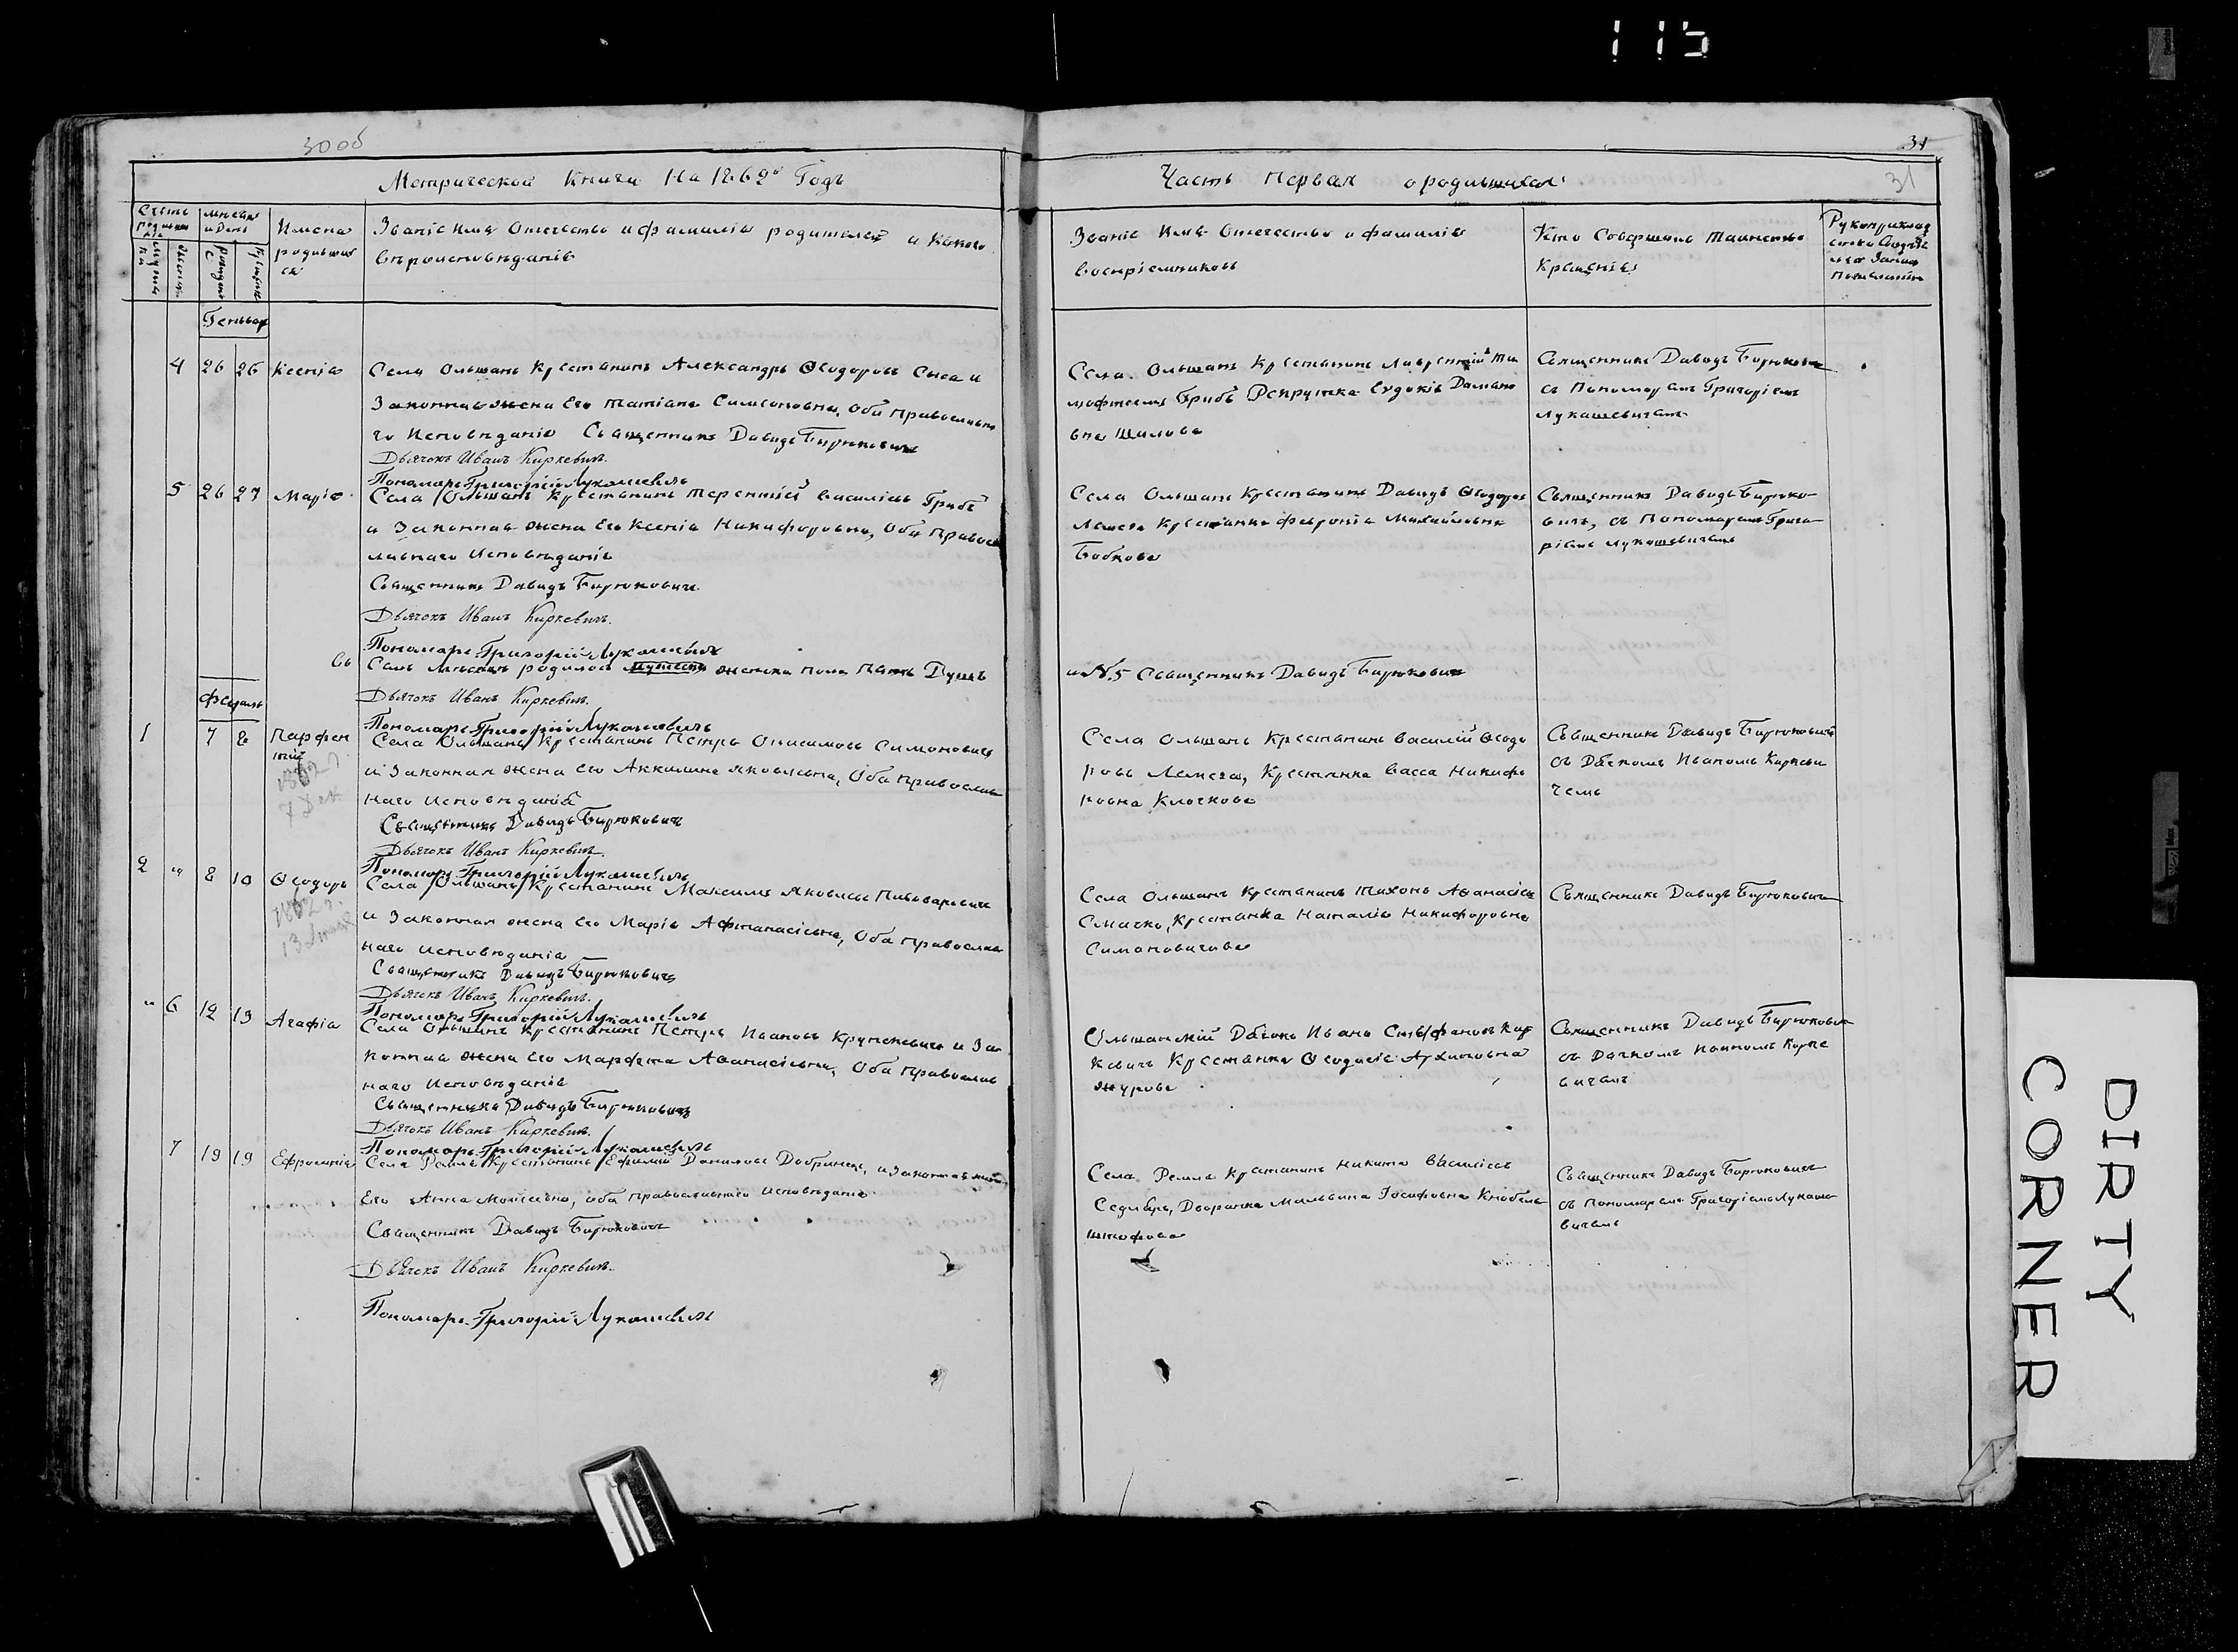 115
30об
31
31
Метрической Книги На 1862й Годъ
Часть Первая о родившихся
Счетъ родивших
Мѣсяцъ и День
Имена родивших ся
Званіе Имя Отечество и фамилія родителей и какого
вѣроисповѣданія
Званіе Имя Отечество и фамилія
воспріемниковъ
Кто Совершалъ Таинство
Крещенія
Рукоприклад
Генварь
4 26 26 Ксенія
Села Ольшанъ Крестьянинъ Александръ Ѳеодоровъ и
Законная жена Его Татіана Симеоновна, Оба Православна
го Исповѣданія Священникъ Давидъ Бирюковичъ
Дьячокъ Иванъ Киркевичъ.
Пономарь Григорій Лукашевичъ
Села Ольшанъ Крестьянинъ Лаврентій Ти
мофтеевъ Грибъ Рекрутка Евдокія Дамьяно
вна Шилова
Священникъ Давидъ Бирюкович
съ Пономаремъ Григоріемъ
Лукашевичемъ
5 26 27 Марія
Села Ольшанъ Крестьянинъ Терентій Василіевъ Грибъ
и Законная жена Его Ксенія Никифоровна, Оба Правос
лавнаго Исповѣданія
Священникъ Давидъ Бирюковичъ
Дьячокъ Иванъ Киркевичъ.
Пономарь Григорій Лукашевичъ
Села Ольшанъ Крестьянинъ Давидъ Ѳеодоров
Лемеза Крестьянка Февронія Михайловна
Бобкова
Священникъ Давидъ Бирюко-
вичъ, съ Пономаремъ Григо-
ріемъ Лукашевичемъ
Въ Семъ Мѣсяцѣ родилось женска пола Пять Душъ
Дьячокъ Иванъ Киркевичъ.
Пономарь Григорій Лукашевичъ
и №.5 Священникъ Давидъ Бирюкович
Февраль
1 7 8 Парфен
тій
1862 г.
7 Дек
Села Ольшанъ Крестьянинъ Петръ Онисимовъ Симоновичъ
и Законная жена Его Аккилина Яковлевна, Оба Православ
наго Исповѣданія
Священникъ Давидъ Бирюковичъ
Дьячокъ Иванъ Киркевичъ.
Пономарь Григорій Лукашевичъ
Села Ольшанъ Крестьянинъ Василій Ѳеодо
ровъ Лемеза, Крестьянка Васса Никифо
ровна Клочкова
Священникъ Давидъ Бирюковичъ
съ Дьячкомъ Иваномъ Киркеви
чемъ
2 " 8 10 Ѳеодоръ
1862 г.
Села Ольшанъ Крестьянинъ Максимъ Яковлевъ Пивоваревичъ
и Законная жена Его Марія Афтанасіевна, Оба Православ
наго Исповѣданія
Священникъ Давидъ Бирюковичъ
Дьячокъ Иванъ Киркевичъ.
Пономарь Григорій Лукашевичъ
Села Ольшанъ Крестьянинъ Тихонъ Аѳанасіев
Смачко, Крестьянка Наталія Никифоровна
Симановичова
Священникъ Давидъ Бирюковичъ
" 6 12 13 Агафія
Села Ольшанъ Крестьянинъ Петръ Ивановъ Крупскевичъ и За-
конная жена Его Марфта Аѳанасіевна, Оба Православ
наго Исповѣданія
Священникъ Давидъ Бирюковичъ
Дьячокъ Иванъ Киркевичъ.
Пономарь Григорій Лукашевичъ
Ольшанскій Дьячокъ Иванъ Стеффановъ Кир
кевичъ Крестьянка Ѳеодосія Архиповна
Журова
Священникъ Давидъ Бирюкович
съ Дячкомъ Иваномъ Кирке
вичемъ
7 19 19 Ефросинія
Села Ремля Крестьянинъ Ефимій Даниловъ Добринецъ, и Законная жена
Его Анна Моисеевна, оба православнаго Исповѣданія
Священникъ Давидъ Бирюковичъ
Дьячокъ Иванъ Киркевичъ.
Пономарь Григорій Лукашевичъ
Села Ремля Крестьянинъ Никита Василіевъ
Дворянка Мальвина Іосифовна Кнобель
штофова
Священникъ Давидъ Бирюковичъ
съ Пономаремъ Григоріемъ Лукаше
вичемъ
DIRTY
CORNER